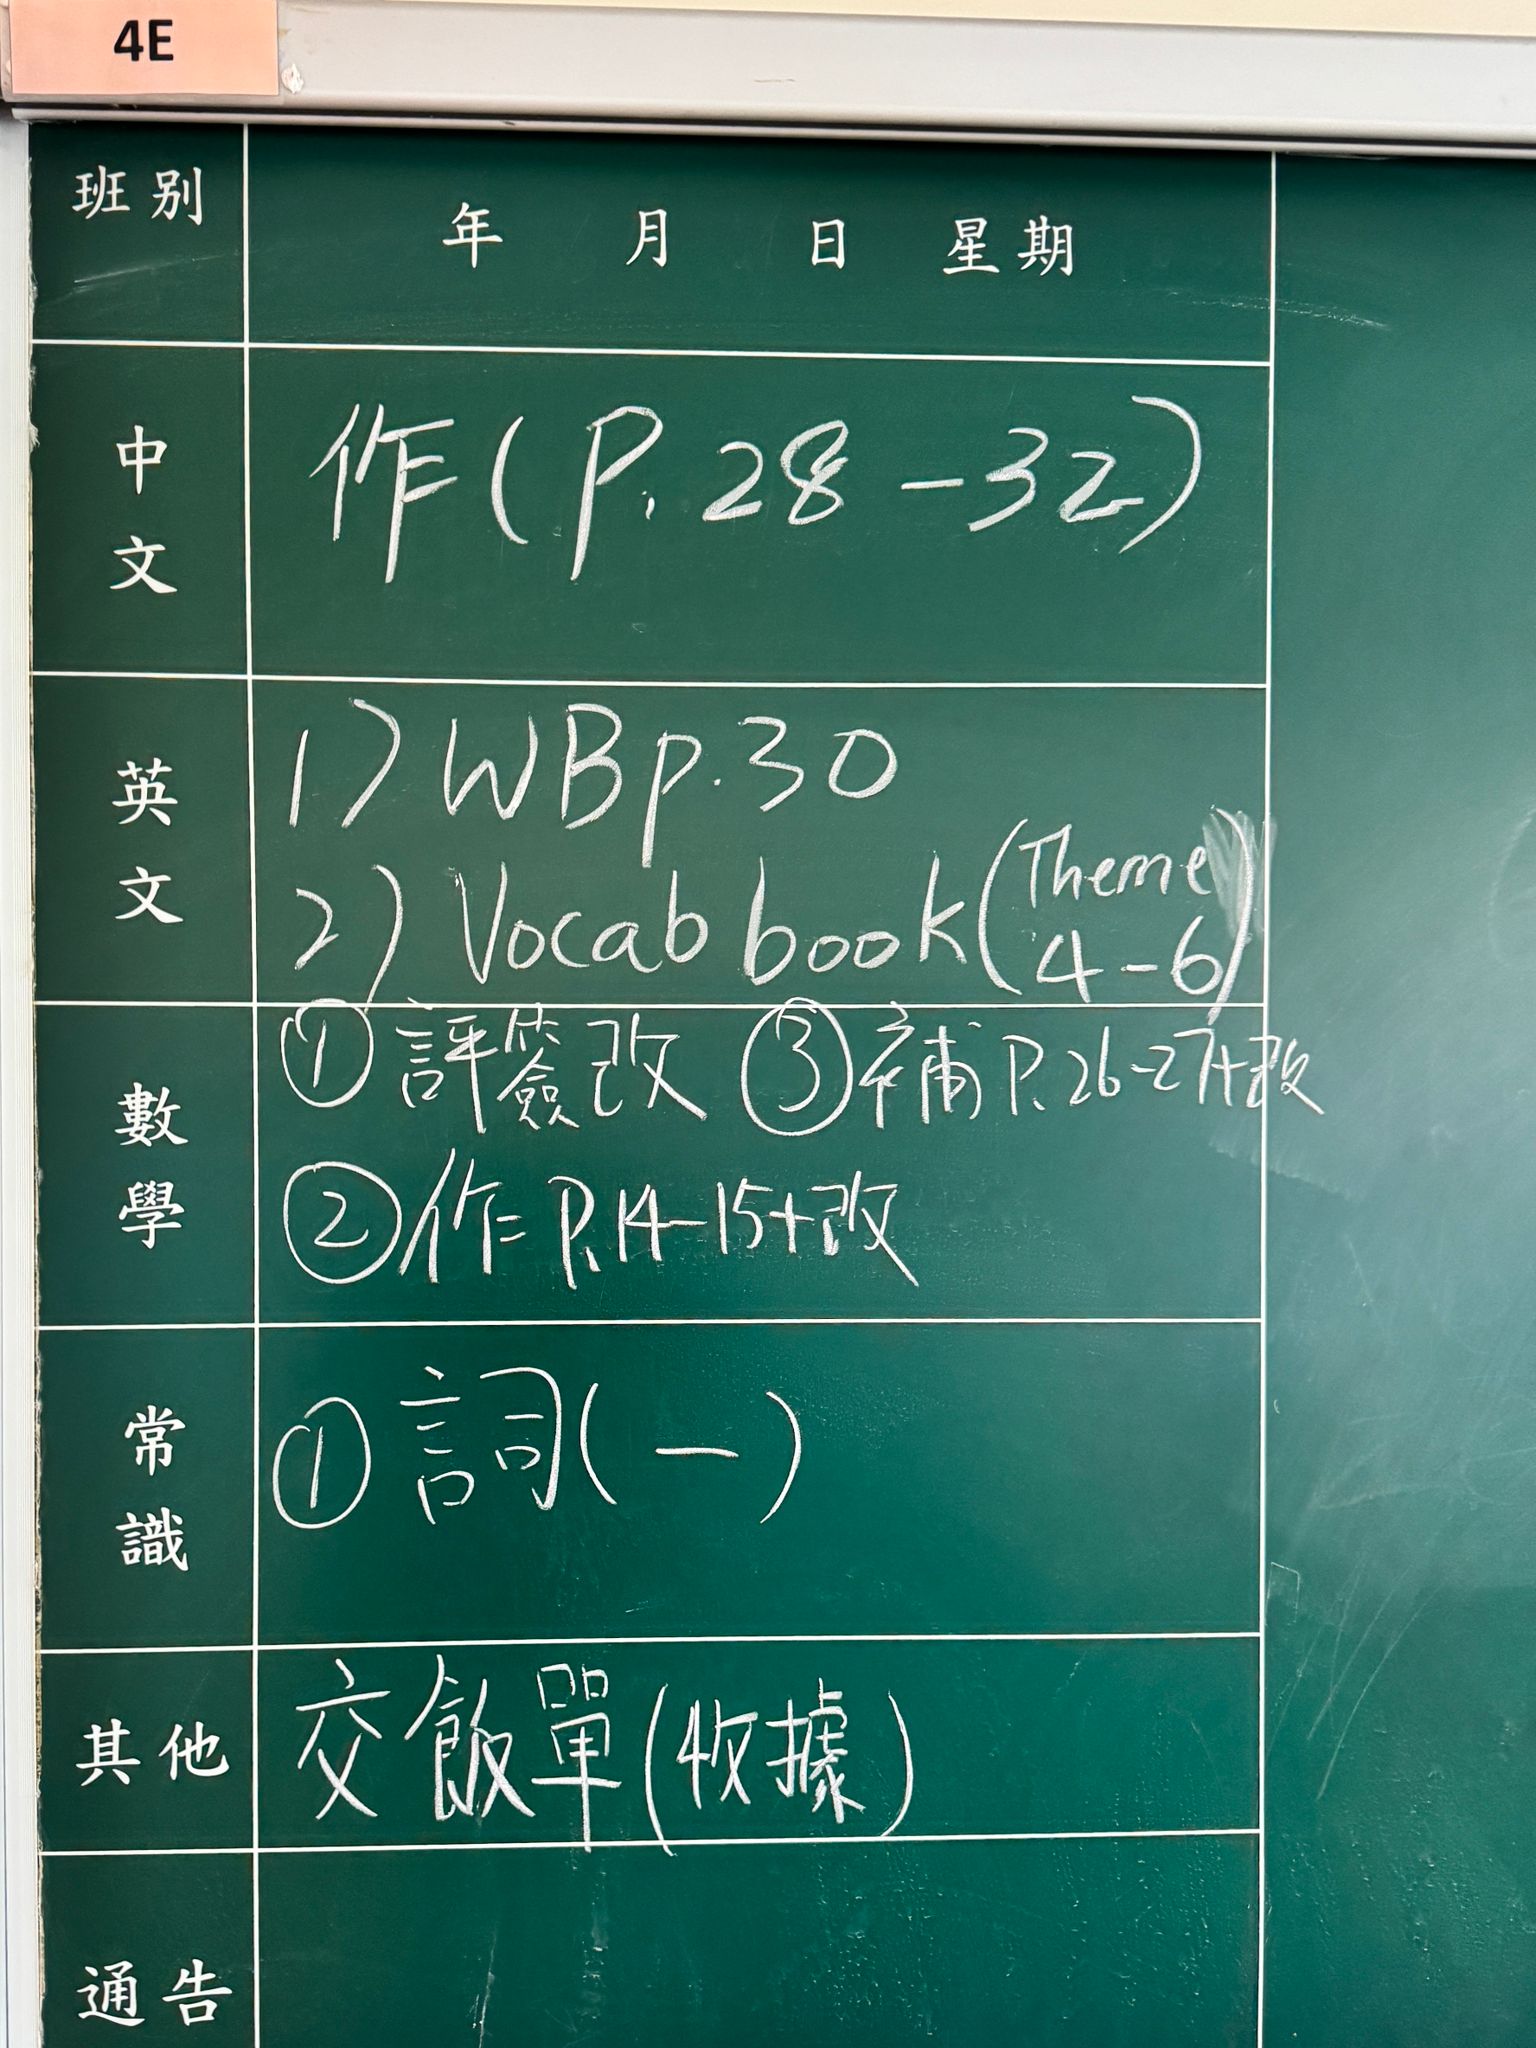 4E
班別
年 月 日 星期
中文
作(P.28-32)
英文
1) WB p.30
2) Vocab book (Theme 4-6)
數學
① 評簽改 ③ 補 P.26-27+改
② 作 P.14-15+改
常識
① 詞(一)
其他
交飯單(收據)
通告